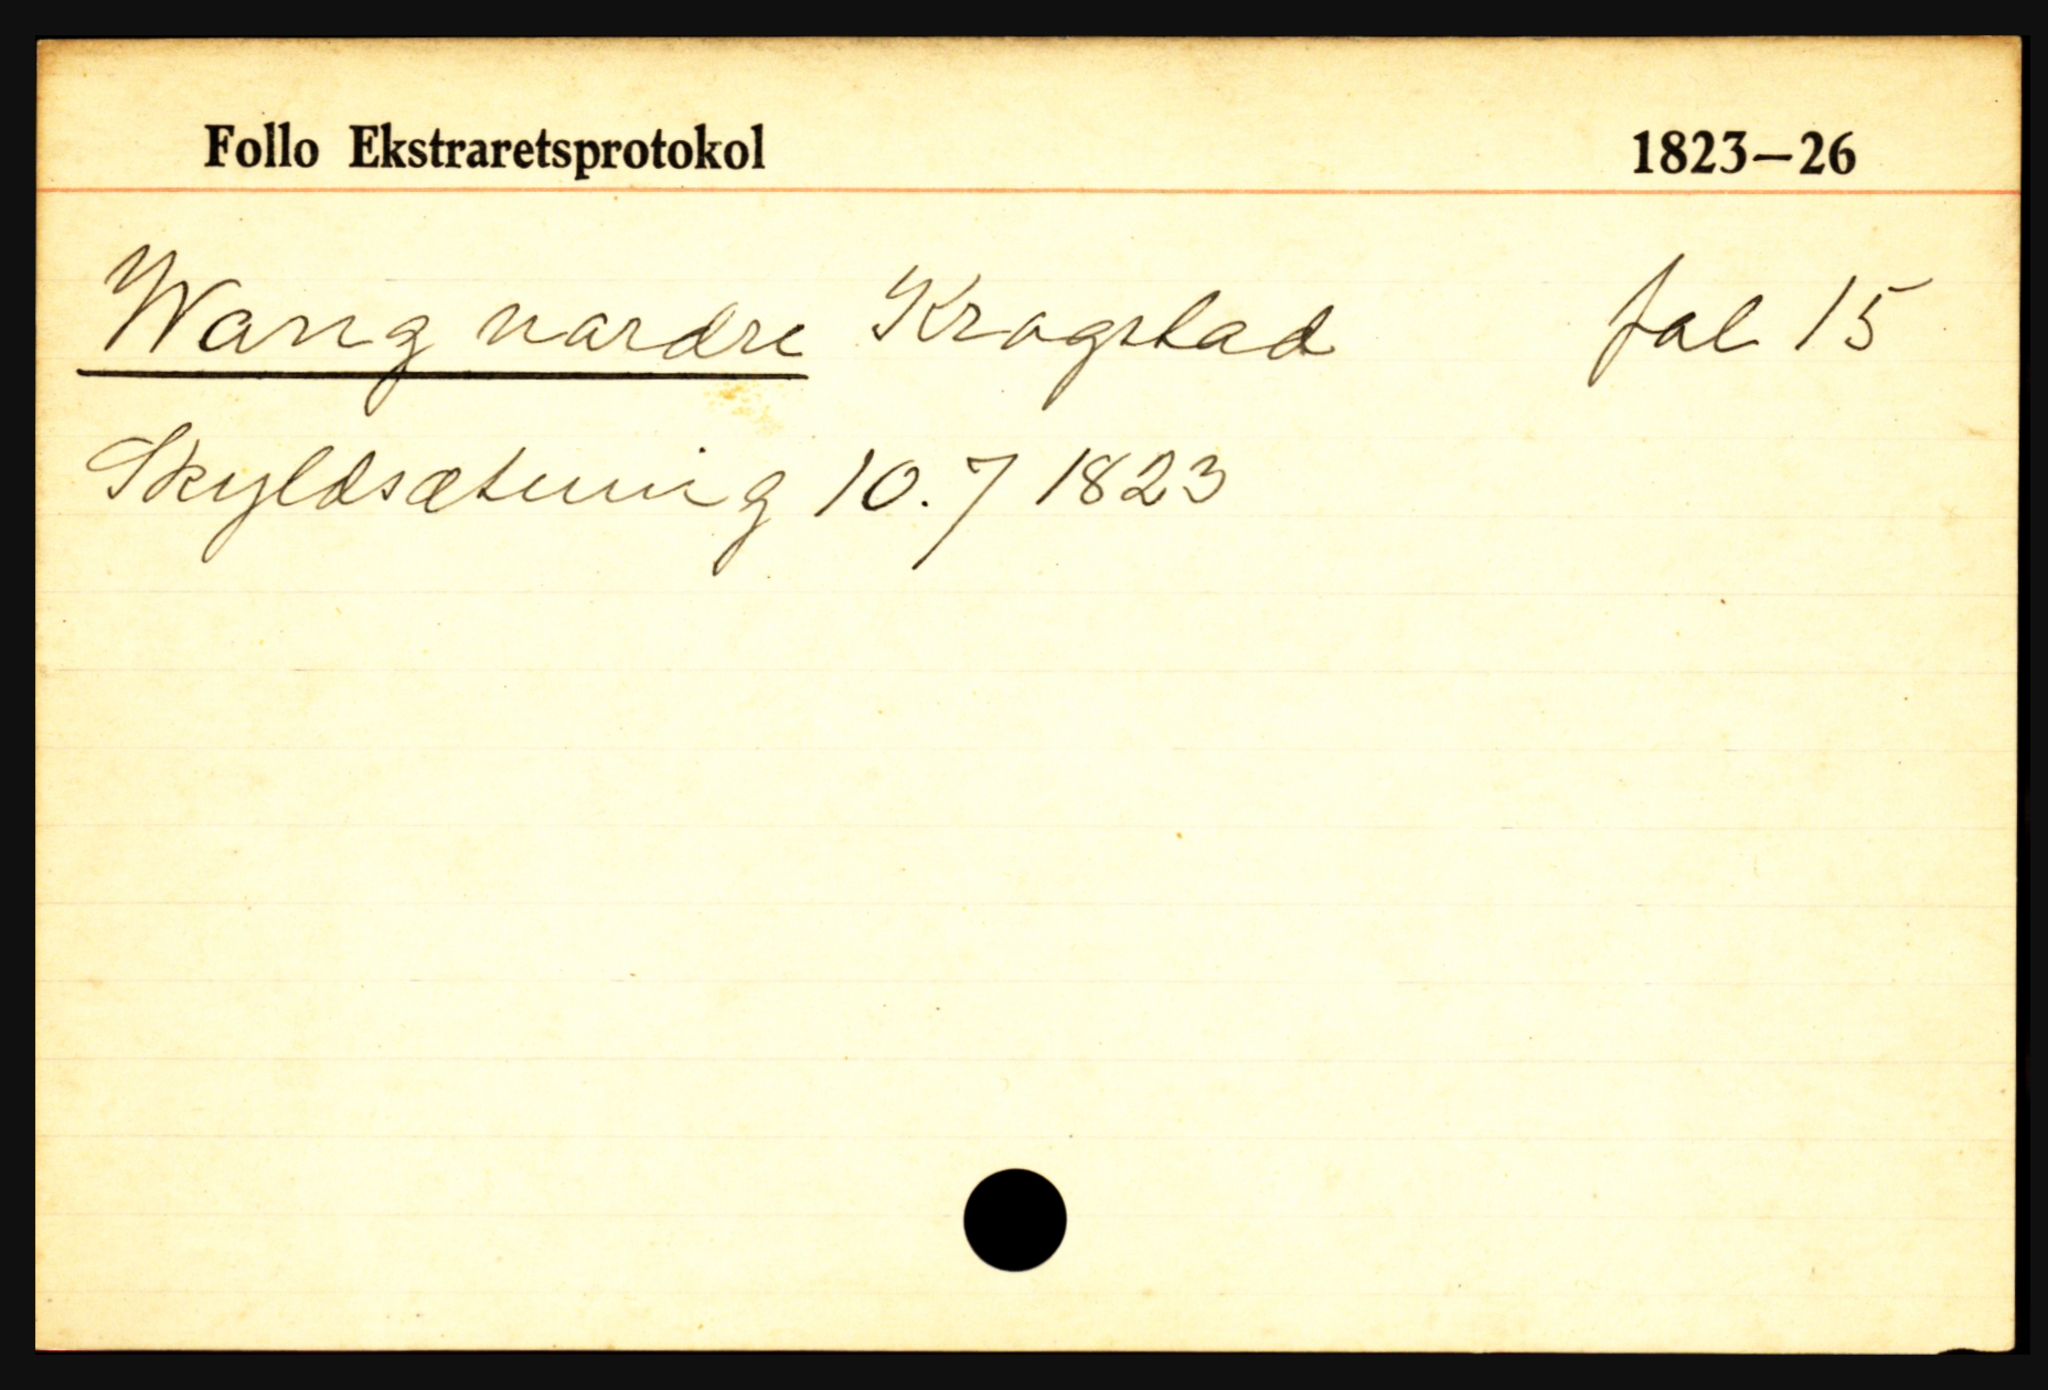 Follo Ekstraretsprotokol 1823–26
Wang nordre Krogstad fol 15
Skyldsætning 10.7 1823